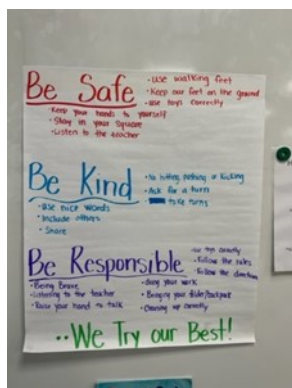 Be Safe
• Use walking feet
• Keep our feet on the ground
• Use toys correctly
• Keep your hands to yourself
• Stay in your square
• Listen to the teacher
Be Kind
• No hitting, pushing or kicking
• Ask for a turn
• take turns
• Use nice words
• Include others
• Share
Be Responsible
• Use toys correctly
• Follow the rules
• Follow the directions
• Being Brave
• Listening to the teacher
• Raise your hand to talk
• doing your work
• Bringing your folder/backpack
• Cleaning up correctly
We Try our Best!